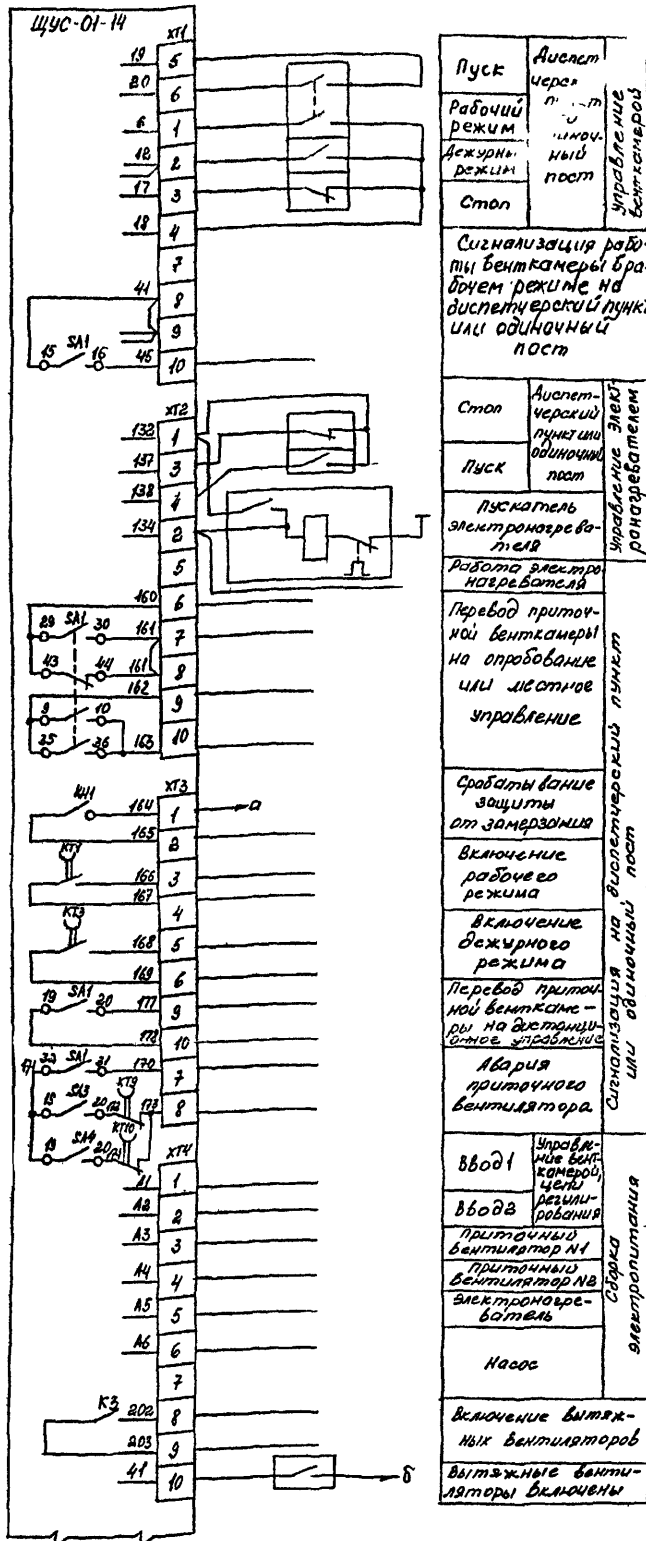 ЩУС-01-14
ХТ1
19 5
20 6
6 1
12 2
17 3
18 4
7
41 8
9
15 SA1 16 45 10
ХТ2
132 1
137 3
138 4
134 2
5
160 6
29 SA1 30 161 7
43 44 161 8
162 9
9 10
25 26 163 10
ХТ3
КН1 164 1 а
165 2
КТ1 166 3
167 4
КТ3 168 5
169 6
19 SA1 20 177 9
178 10
171 32 SA1 31 170 7
18 SA3 20 172 КТ9 173 8
19 SA4 20 174 КТ10
ХТ4
А1 1
А2 2
А3 3
А4 4
А5 5
А6 6
7
К3 202 8
203 9
41 10 б
Пуск
Рабочий
режим
Дежурный
режим
Стоп
ный
пост
Управление
венткамерой
Сигнализация рабо-
ты венткамеры в ра-
бочем режиме на
диспетчерский пункт
или одиночный
пост
Стоп
Пуск
Диспет-
черский
пункт или
одиночный
пост
Управление элект-
ронагревателем
Пускатель
электронагрева-
теля
Работа электро
нагревателя
Перевод приточ-
ной венткамеры
на опробование
или местное
управление
Срабатывание
защиты
от замерзания
Включение
рабочего
режима
Включение
дежурного
режима
Перевод приточ-
ной венткаме-
ры на дистанци-
онное управление
Авария
приточного
вентилятора
Сигнализация на диспетчерский пункт
или одиночный пост
Ввод1
Ввод2
Управле-
ние вент-
камерой,
цепи
регули-
рования
Приточный
вентилятор N1
Приточный
вентилятор N2
Электронагре-
ватель
Насос
Сборка
электропитания
Включение вытяж-
ных вентиляторов
Вытяжные венти-
ляторы включены